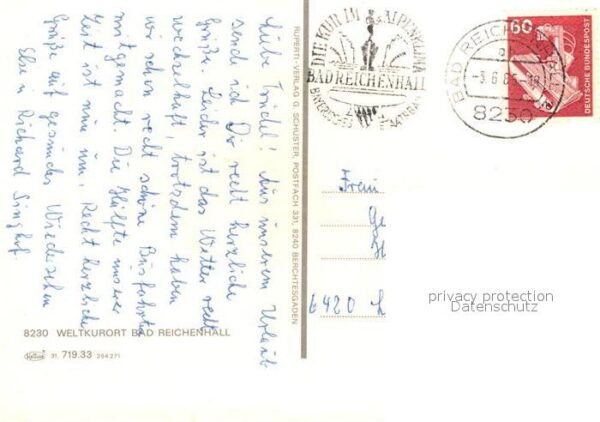 Liebe Friedel! Aus unserem Urlaub
sende ich Dir recht herzliche
Grüße. Leider ist das Wetter recht
wechselhaft, trotzdem haben
wir schon recht schöne Busfahrten
mitgemacht. Die Hälfte unserer
Zeit ist nun um. Recht herzliche
Grüße auf gesundes Wiedersehen
Else u. Richard
8230 WELTKURORT BAD REICHENHALL
31. 719.33 264 271
RUPERTI-VERLAG G. SCHUSTER, POSTFACH 331, 8240 BERCHTESGADEN
DIE KUR IM ALPENKLIMA
BAD REICHENHALL
BAYERISCHES STAATSBAD
BAD REICHENHALL
8230
60
DEUTSCHE BUNDESPOST
Frau
6420 L
privacy protection
Datenschutz